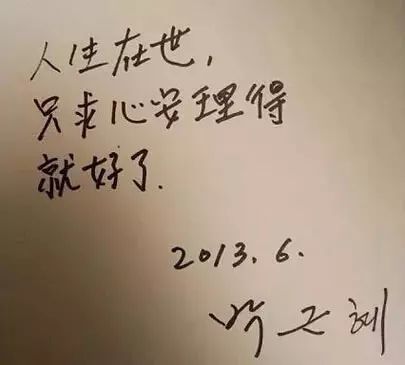 人生在世，
只求心安理得
就好了.
2013.6.
박근혜